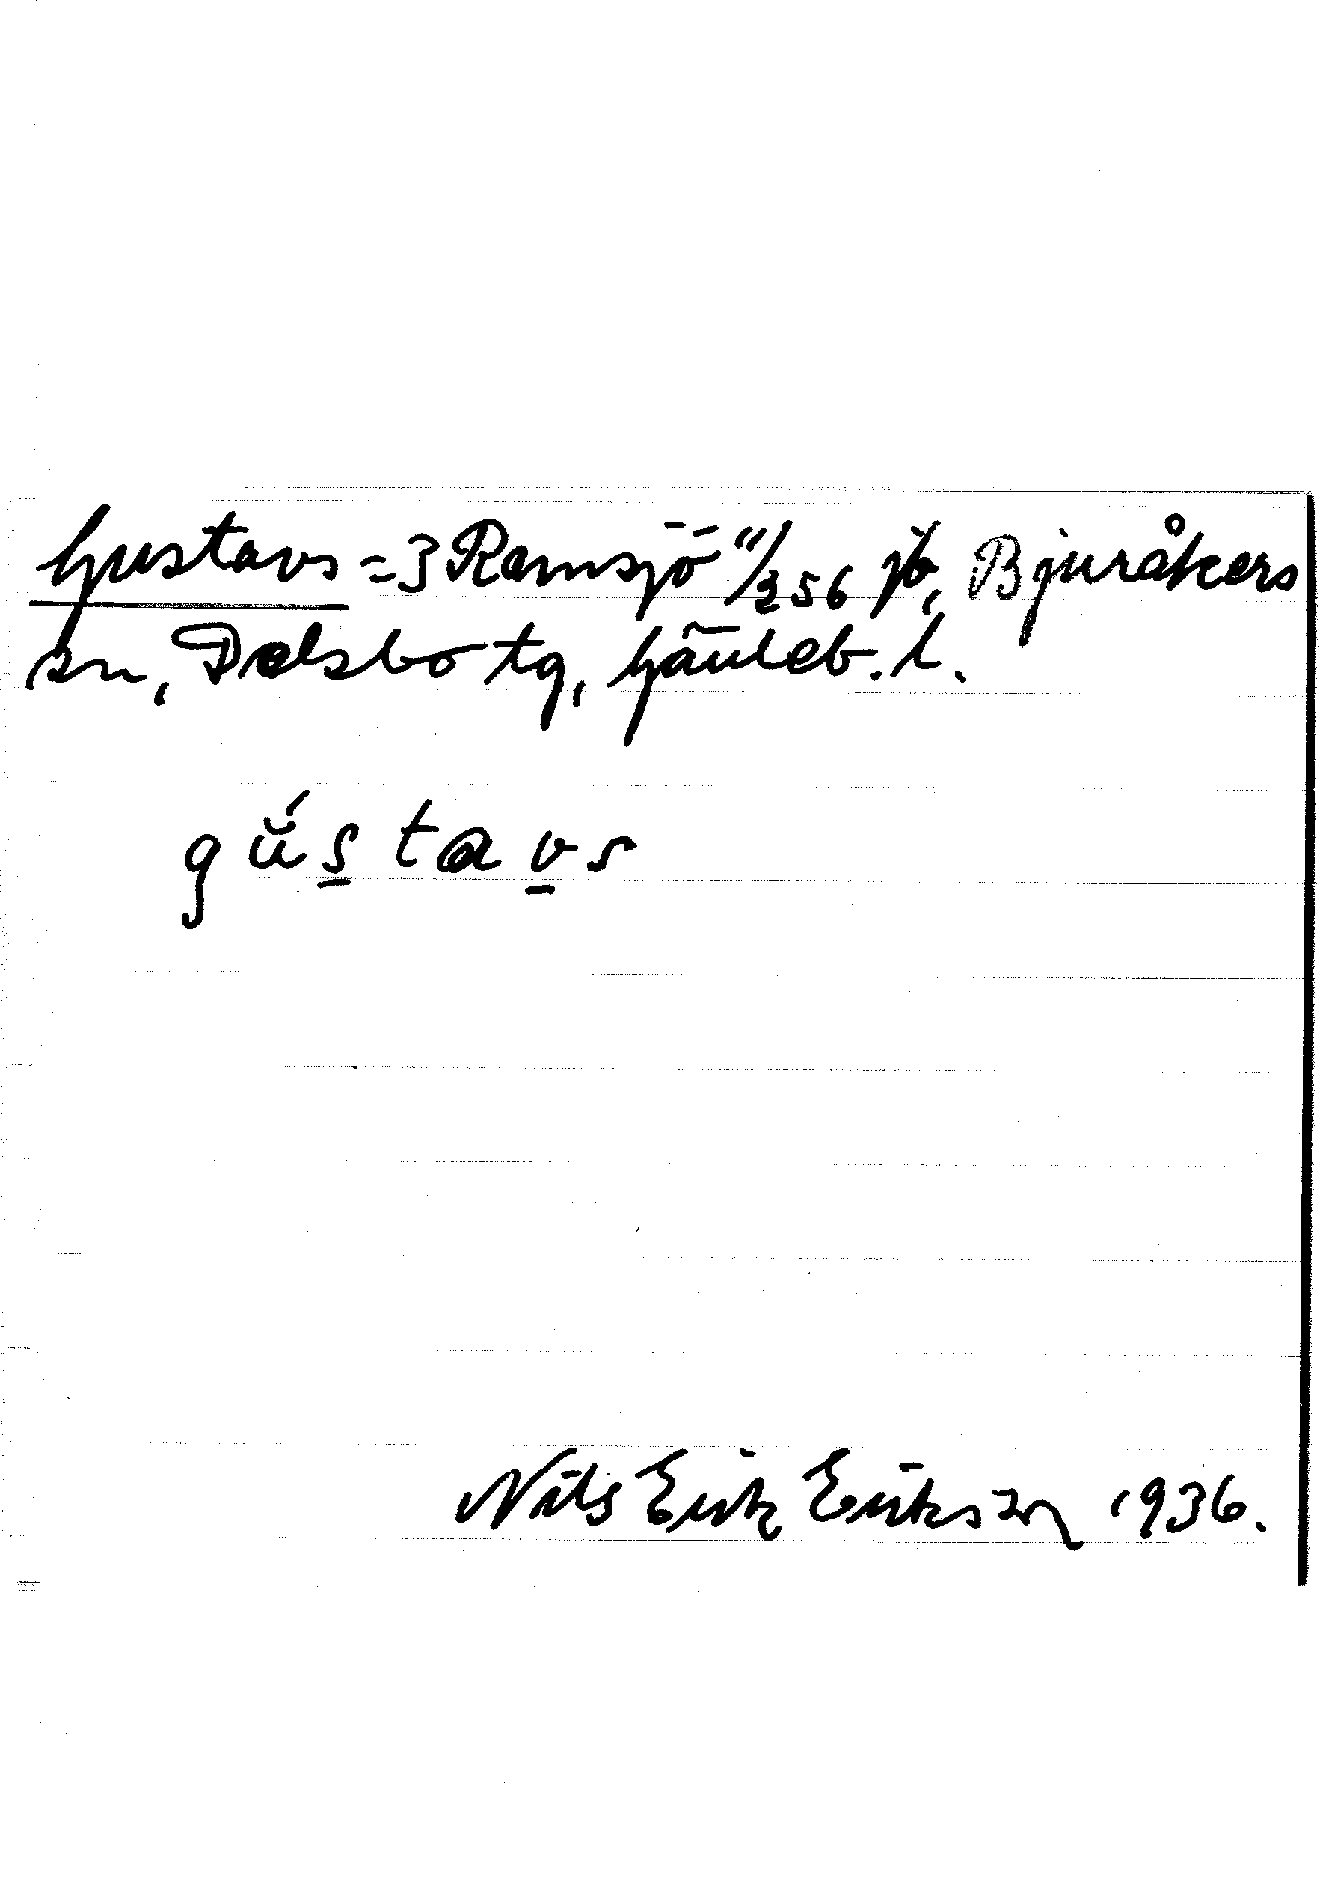 Gustavs = 3 Ramsjö 11/256 jb, Bjuråkers
sn, Delsbo tg, Gävleb. l.
gu̇́s̲tav̲s
Nils Erik Erikson 1936.